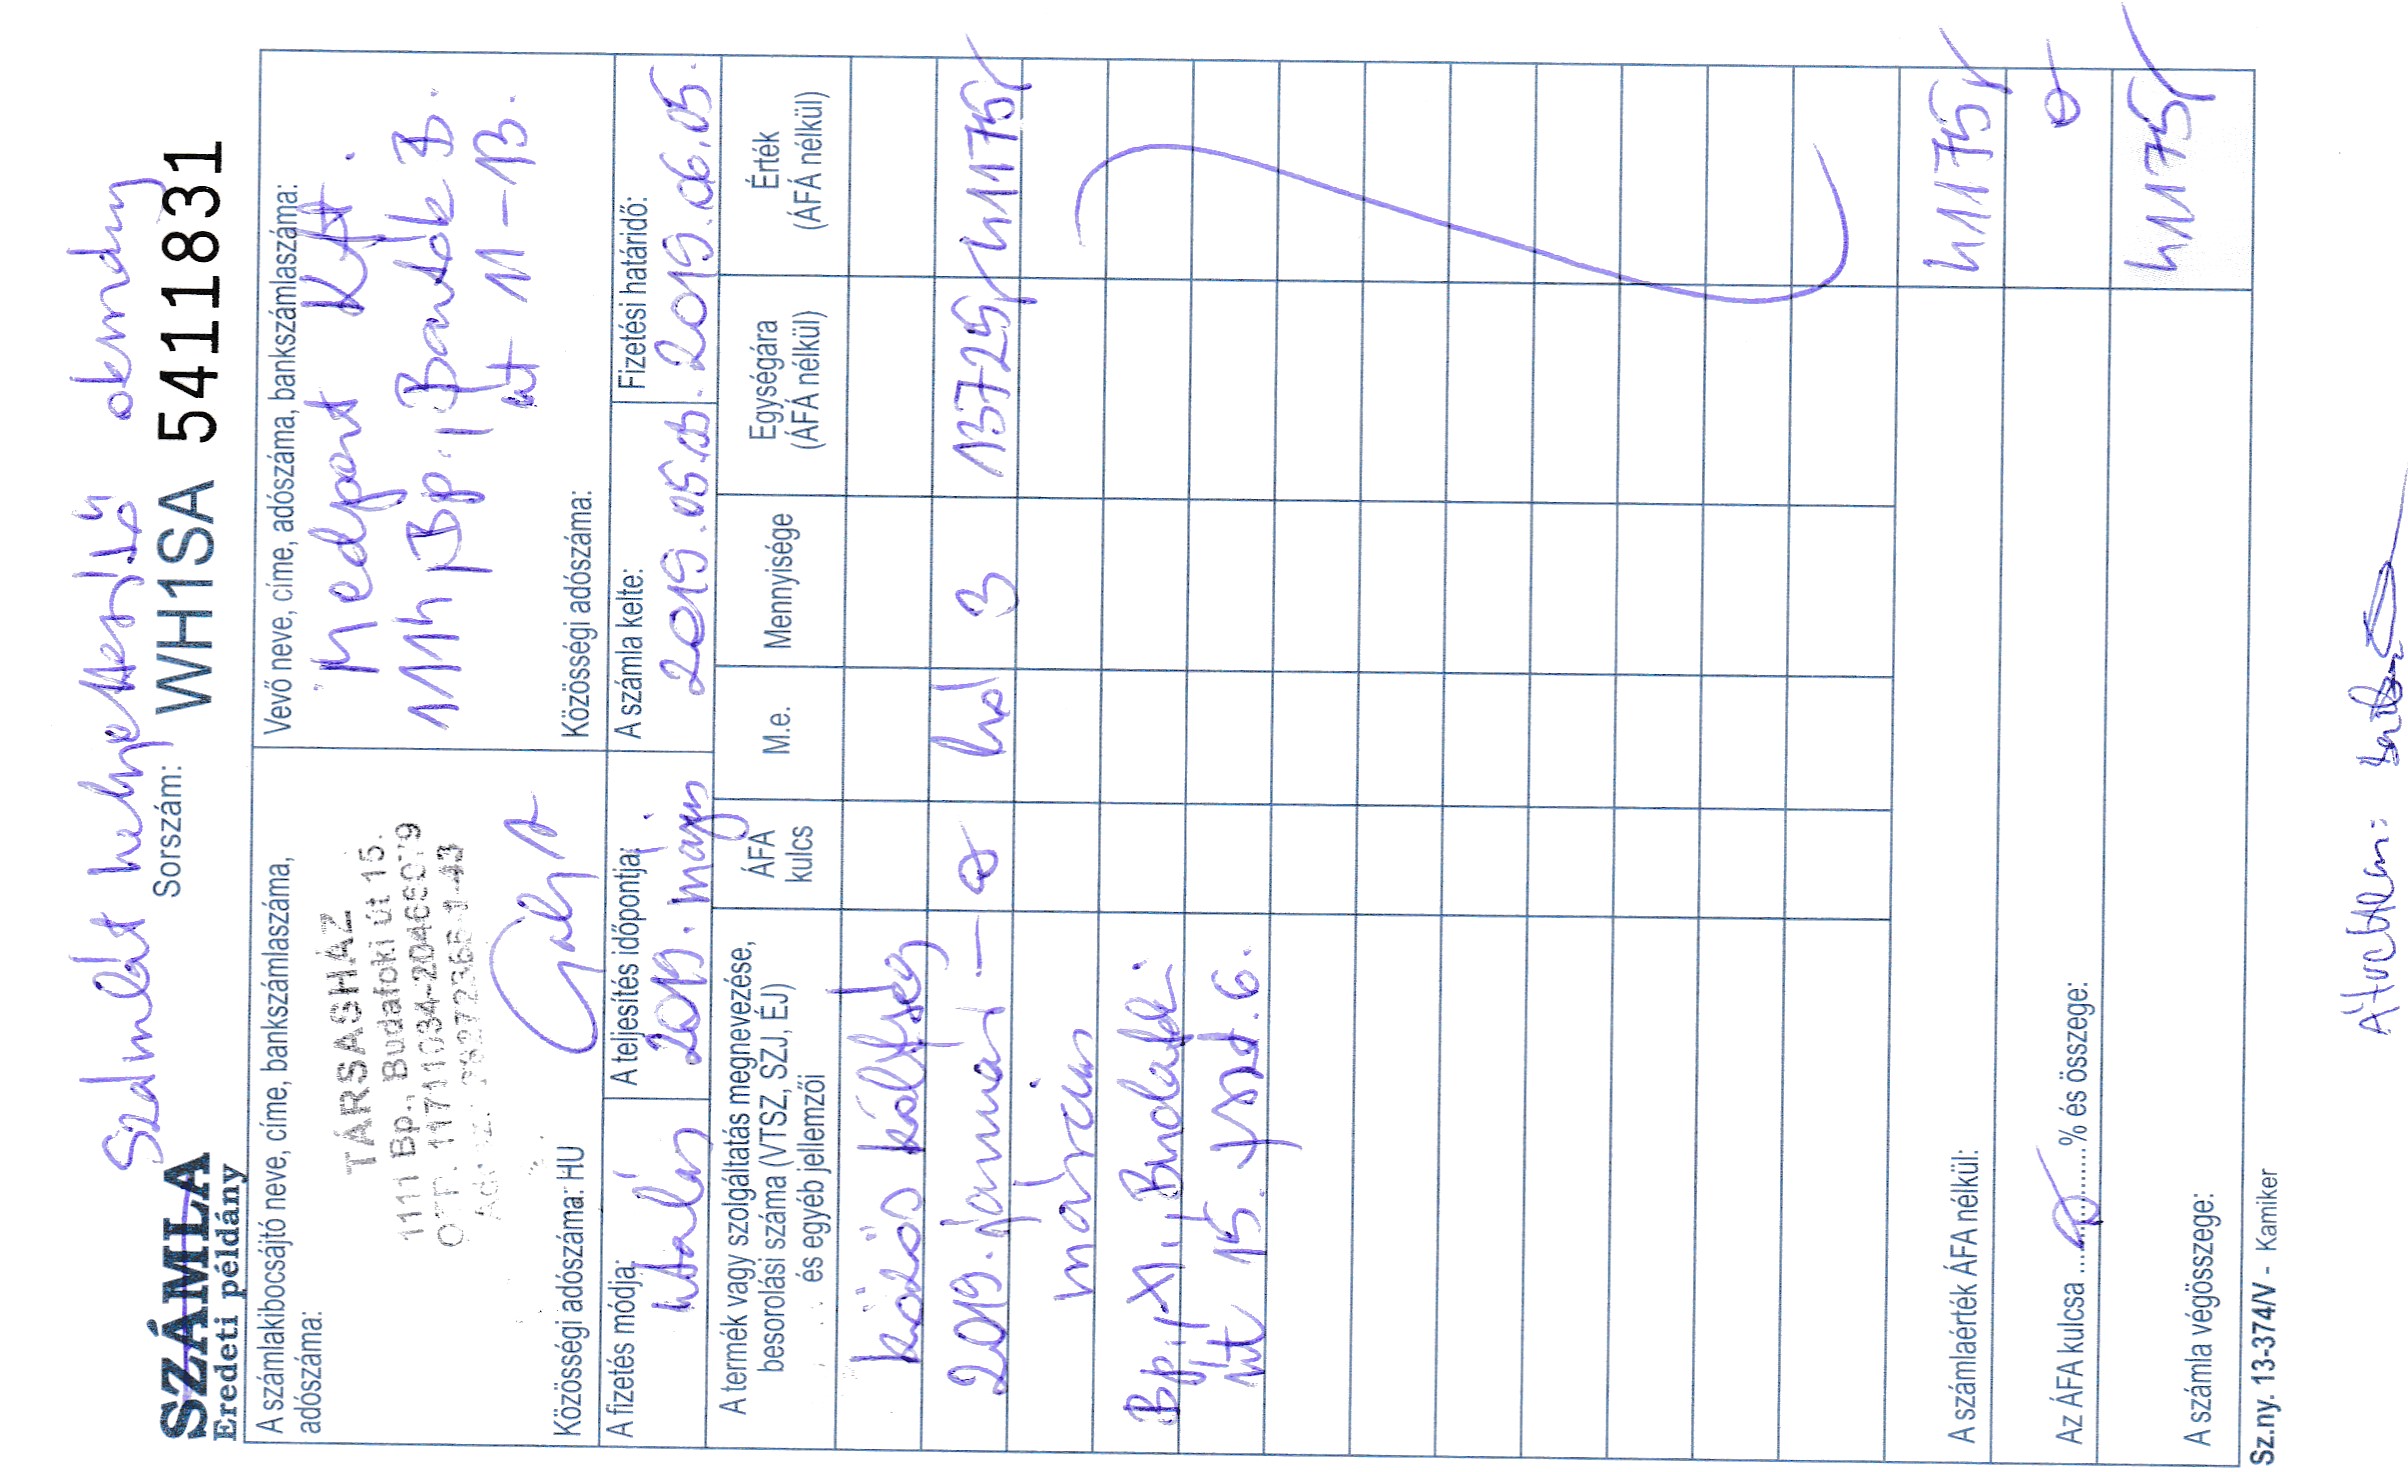 Számlát helyettesítő okmány
SZÁMLA
Eredeti példány
Sorszám: WH1SA 5411831
A számlakibocsájtó neve, címe, bankszámlaszáma,
adószáma:
TÁRSASHÁZ
1111 Bp., Budafoki út 15.
Közösségi adószáma: HU
Vevő neve, címe, adószáma, bankszámlaszáma:
Medport Kft.
1114, Bp., Bartók B.
út 11-13.
Közösségi adószáma:
A fizetés módja:
utalás
A teljesítés időpontja:
2019. május
A számla kelte:
2019.05.05.
Fizetési határidő:
2019.06.05.
A termék vagy szolgáltatás megnevezése,
besorolási száma (VTSZ, SZJ, ÉJ)
és egyéb jellemzői
ÁFA
kulcs
M.e.
Mennyisége
Egységára
(ÁFÁ nélkül)
Érték
(ÁFÁ nélkül)
közös költség
2019. január – 0 hó 3 13725,- 41175,-
március
Bp., XI., Budafoki
út 15. fszt. 6.
A számlaérték ÁFA nélkül: 41175,-
Az ÁFA kulcsa ....0....% és összege: 0
A számla végösszege: 41175,-
Sz.ny. 13-374/V - Kamiker
Átvettem: